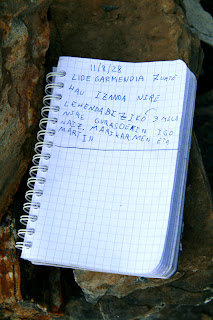 11/8/28
LIDE GARMENDIA 7 URTE
HAU IZANDA NIRE
LEHENDABIZIKO 3 MILA
NIRE GURASOEKIN IGO
NAIZ. MARI KARMEN ETA
MARTIN